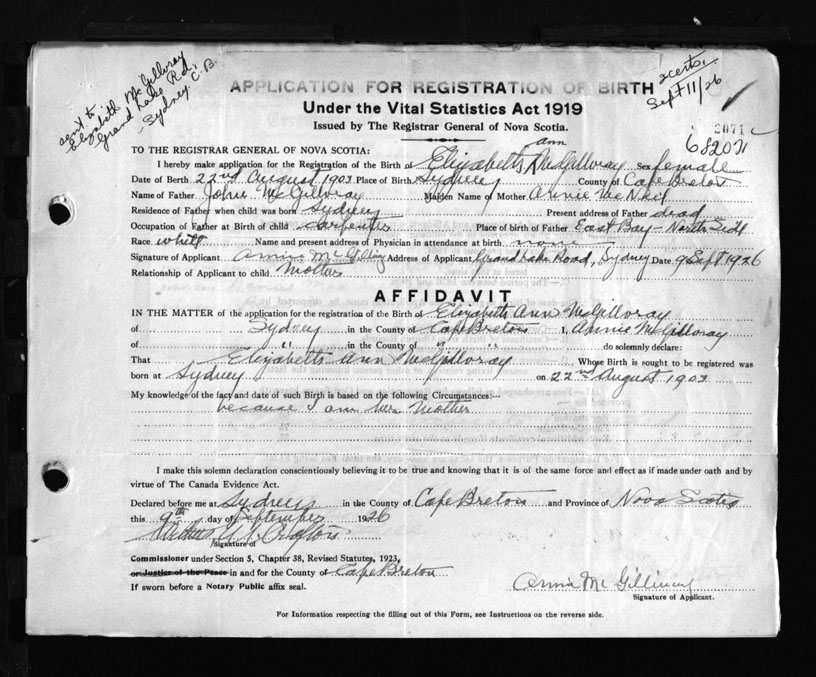 sent to
Elizabeth McGillvray
Grand Lake Rd,
Sydney C.B.
2 certs.
Sept 11/26
APPLICATION FOR REGISTRATION OF BIRTH
Under the Vital Statistics Act 1919
Issued by The Registrar General of Nova Scotia.
2071
682071
TO THE REGISTRAR GENERAL OF NOVA SCOTIA:
ann
I hereby make application for the Registration of the Birth of Elizabeth McGillvray Sex female
Date of Birth 22nd August 1903 Place of Birth Sydney County of Cape Breton
Name of Father John McGillvray Maiden Name of Mother Annie McNeil
Residence of Father when child was born Sydney Present address of Father dead
Occupation of Father at Birth of child Carpenter Place of birth of Father East Bay - North Side
Race white Name and present address of Physician in attendance at birth none
Signature of Applicant Annie McGillvray Address of Applicant Grand Lake Road, Sydney Date 9 Sept 1926
Relationship of Applicant to child Mother
AFFIDAVIT
IN THE MATTER of the application for the registration of the Birth of Elizabeth Ann McGillvray
of Sydney in the County of Cape Breton I, Annie McGillvray
of " in the County of " do solemnly declare:
That Elizabeth Ann McGillvray Whose Birth is sought to be registered was
born at Sydney on 22nd August 1903
My knowledge of the fact and date of such Birth is based on the following Circumstances:—
because I am her Mother
I make this solemn declaration conscientiously believing it to be true and knowing that it is of the same force and effect as if made under oath and by
virtue of The Canada Evidence Act.
Declared before me at Sydney in the County of Cape Breton and Province of Nova Scotia
this 9th day of September 1926
Signature of
Commissioner under Section 5, Chapter 38, Revised Statutes, 1923,
or Justice of the Peace in and for the County of Cape Breton
If sworn before a Notary Public affix seal.
Annie McGillivray
Signature of Applicant.
For Information respecting the filling out of this Form, see Instructions on the reverse side.